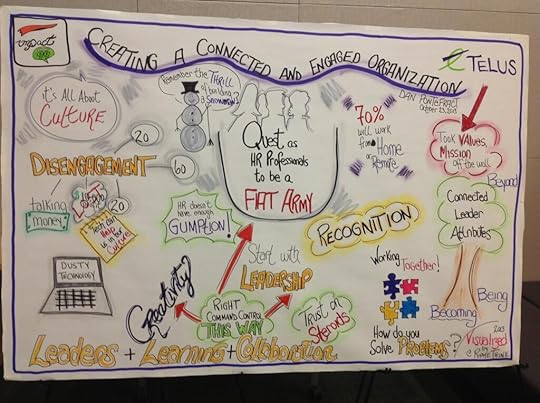 impact
CREATING A CONNECTED AND ENGAGED ORGANIZATION
TELUS
DAN PONTEFRACT
October 23, 2013
It's All About
CULTURE
Remember the THRILL
of building
a SNOWMAN?
Quest as
HR Professionals
to be a
FIAT ARMY
70%
will work
from Home
or Remote
Took VALUES,
Mission
off the wall
20
DISENGAGEMENT
60
20
talking
MONEY
Tech can
Help
us in our
CULTURE
HR doesn't
have enough
GUMPTION!
RECOGNITION
Beyond
Connected
Leader
Attributes
Start with
LEADERSHIP
Working
Together!
DUSTY
TECHNOLOGY
Creativity
RIGHT
COMMAND CONTROL
THIS WAY
Trust on
Steroids
Being
Becoming
How do you
Solve PROBLEMS?
Leaders + Learning + Collaboration
2013
Visualized
By